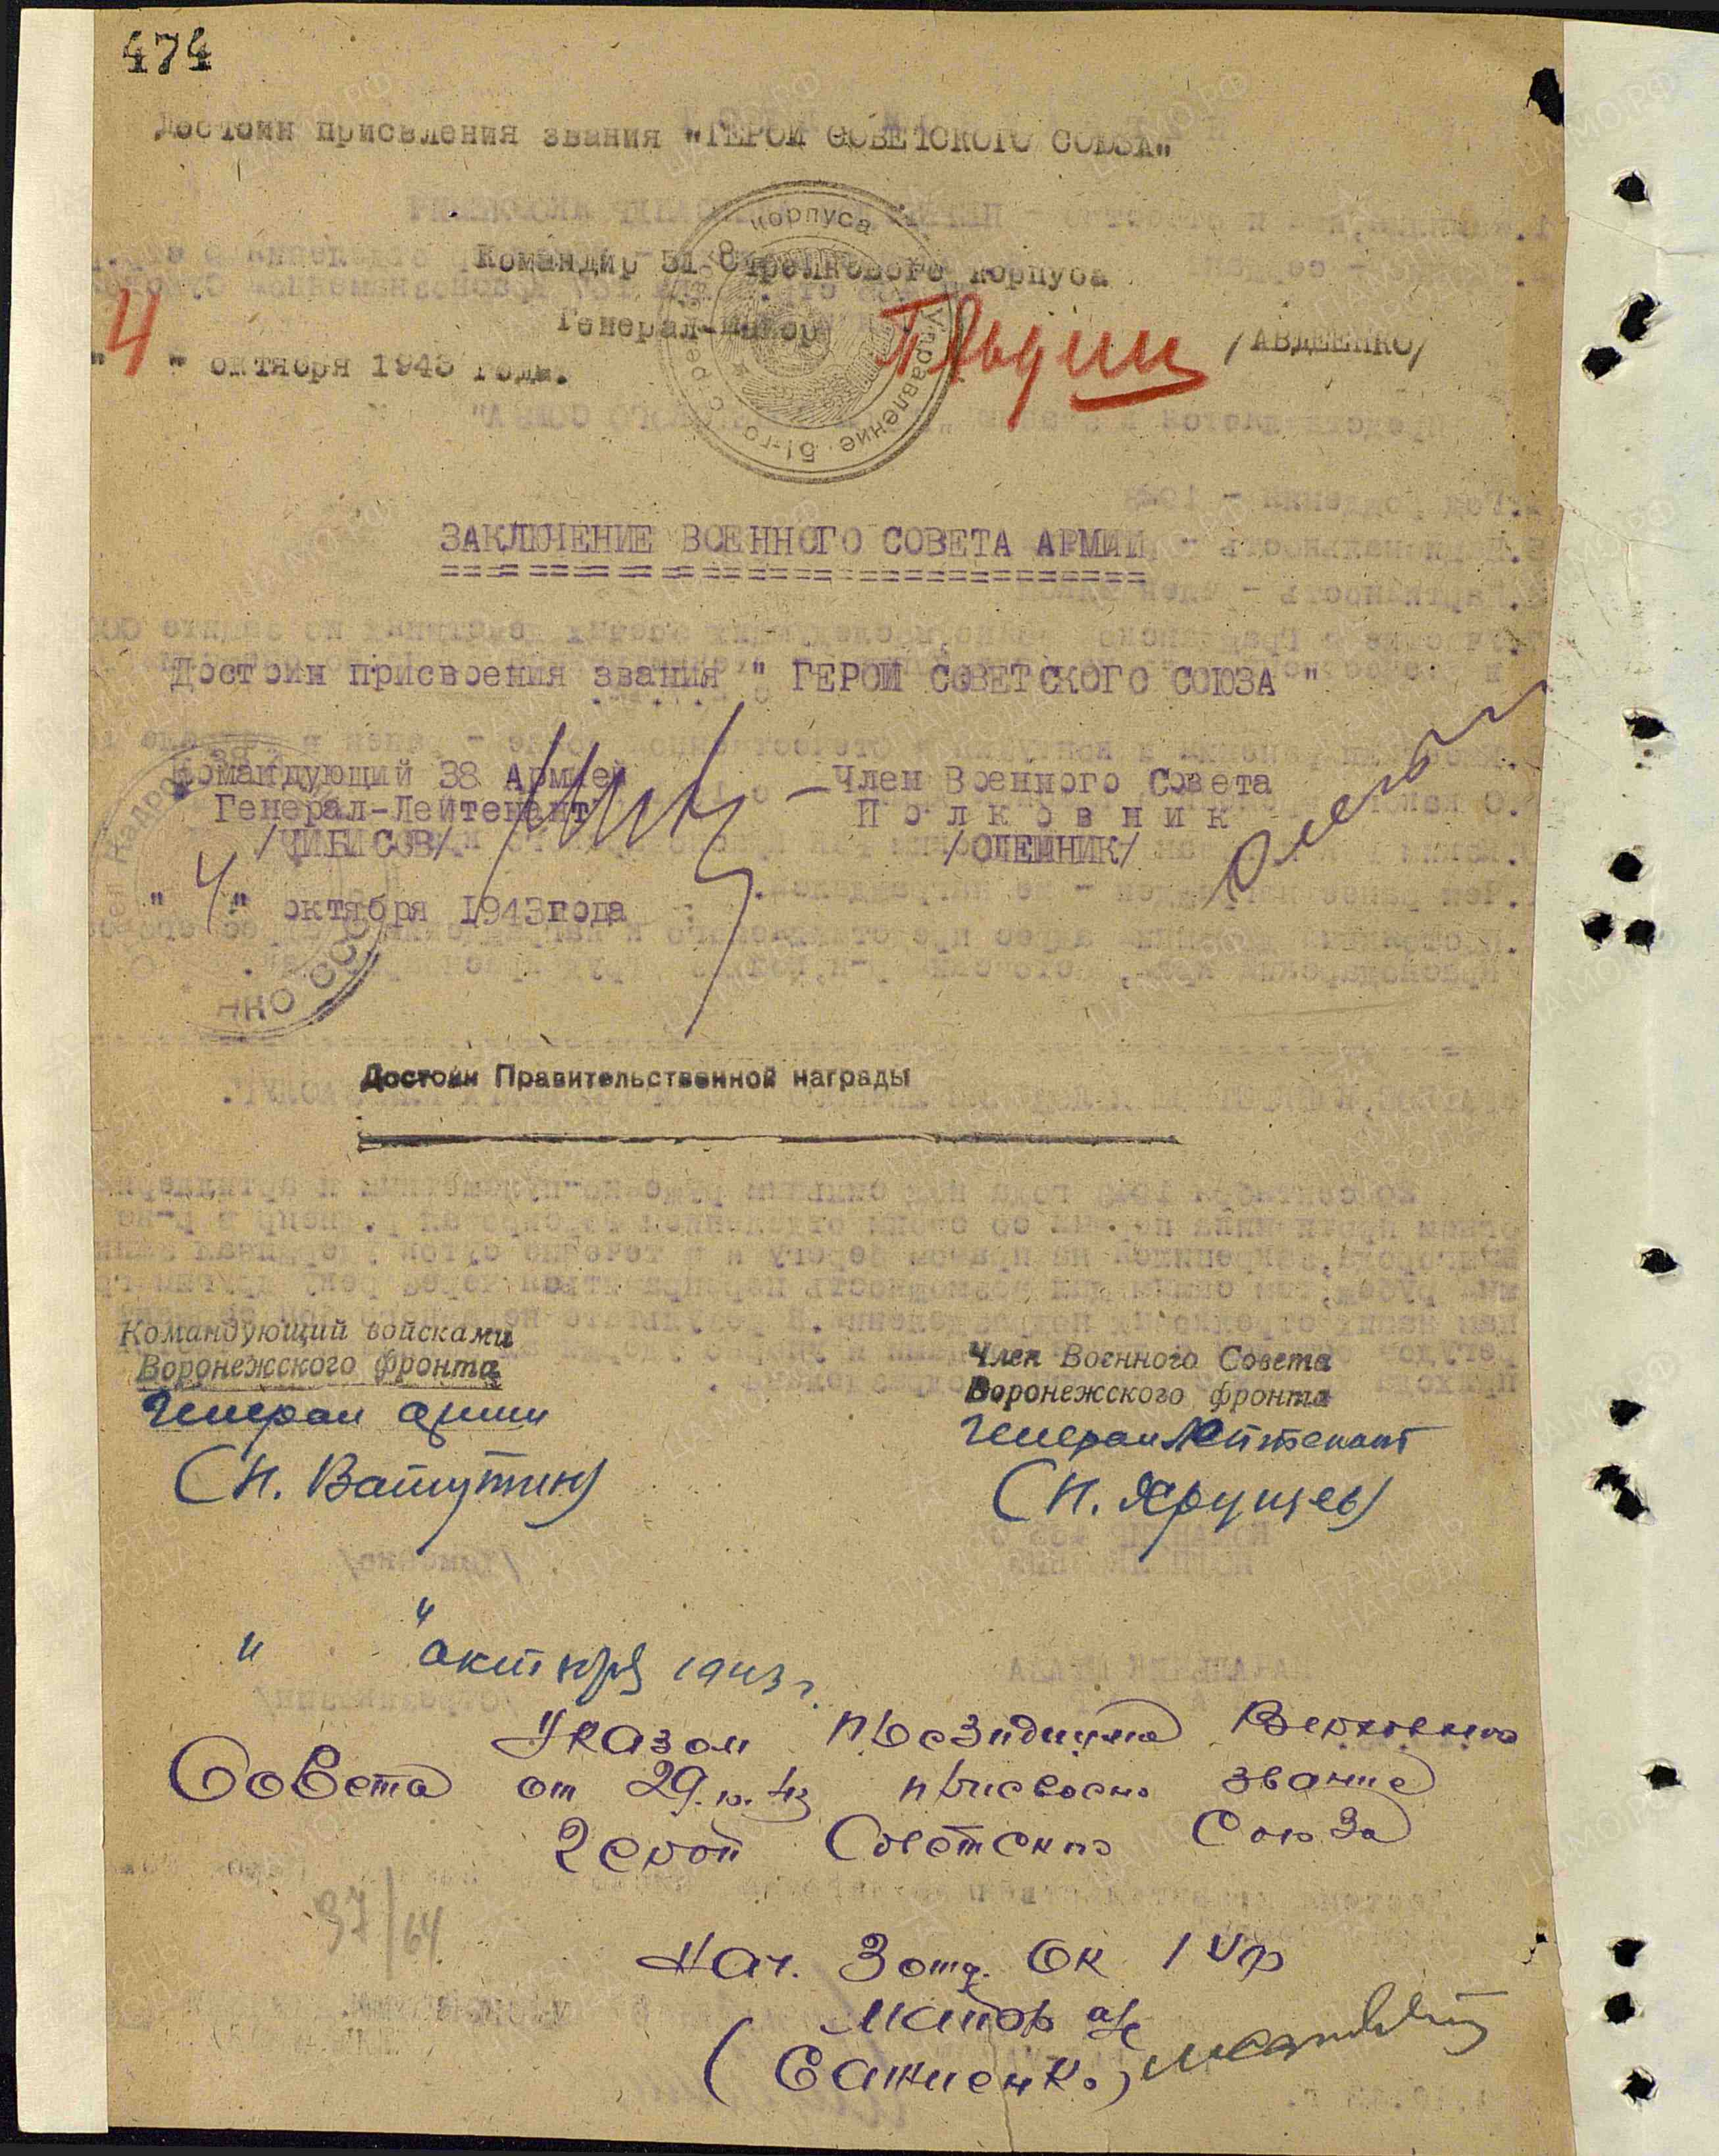 474
Достоин присвления звания "ГЕРОЙ СОВЕТСКОГО СОЮЗА"
Командир 51 Стрелкового корпуса
Генерал-майор /АВДЕЕНКО/
"4" октября 1943 года.
Управление 51-го стрелкового корпуса
ЗАКЛЮЧЕНИЕ ВОЕННОГО СОВЕТА АРМИИ
Достоин присвоения звания " ГЕРОЙ СОВЕТСКОГО СОЮЗА "
Командующий 38 Армией
Генерал-Лейтенант
/ЧИБИСОВ/
Член Военного Совета
Полковник
/ОЛЕЙНИК/
" 4 " октября 1943года
НКО СССР
Достоин Правительственной награды
Командующий войсками
Воронежского фронта
Генерал армии
(Н. Ватутин)
Член Военного Совета
Воронежского фронта
Генерал Лейтенант
(Н. Хрущев)
" " октября 1943 г.
Указом Президиума Верховного
Совета от 29.10.43 присвоено звание
Герой Советского Союза
37/64
Нач. 3 отд. ОК 1 Уф
Майор а/с